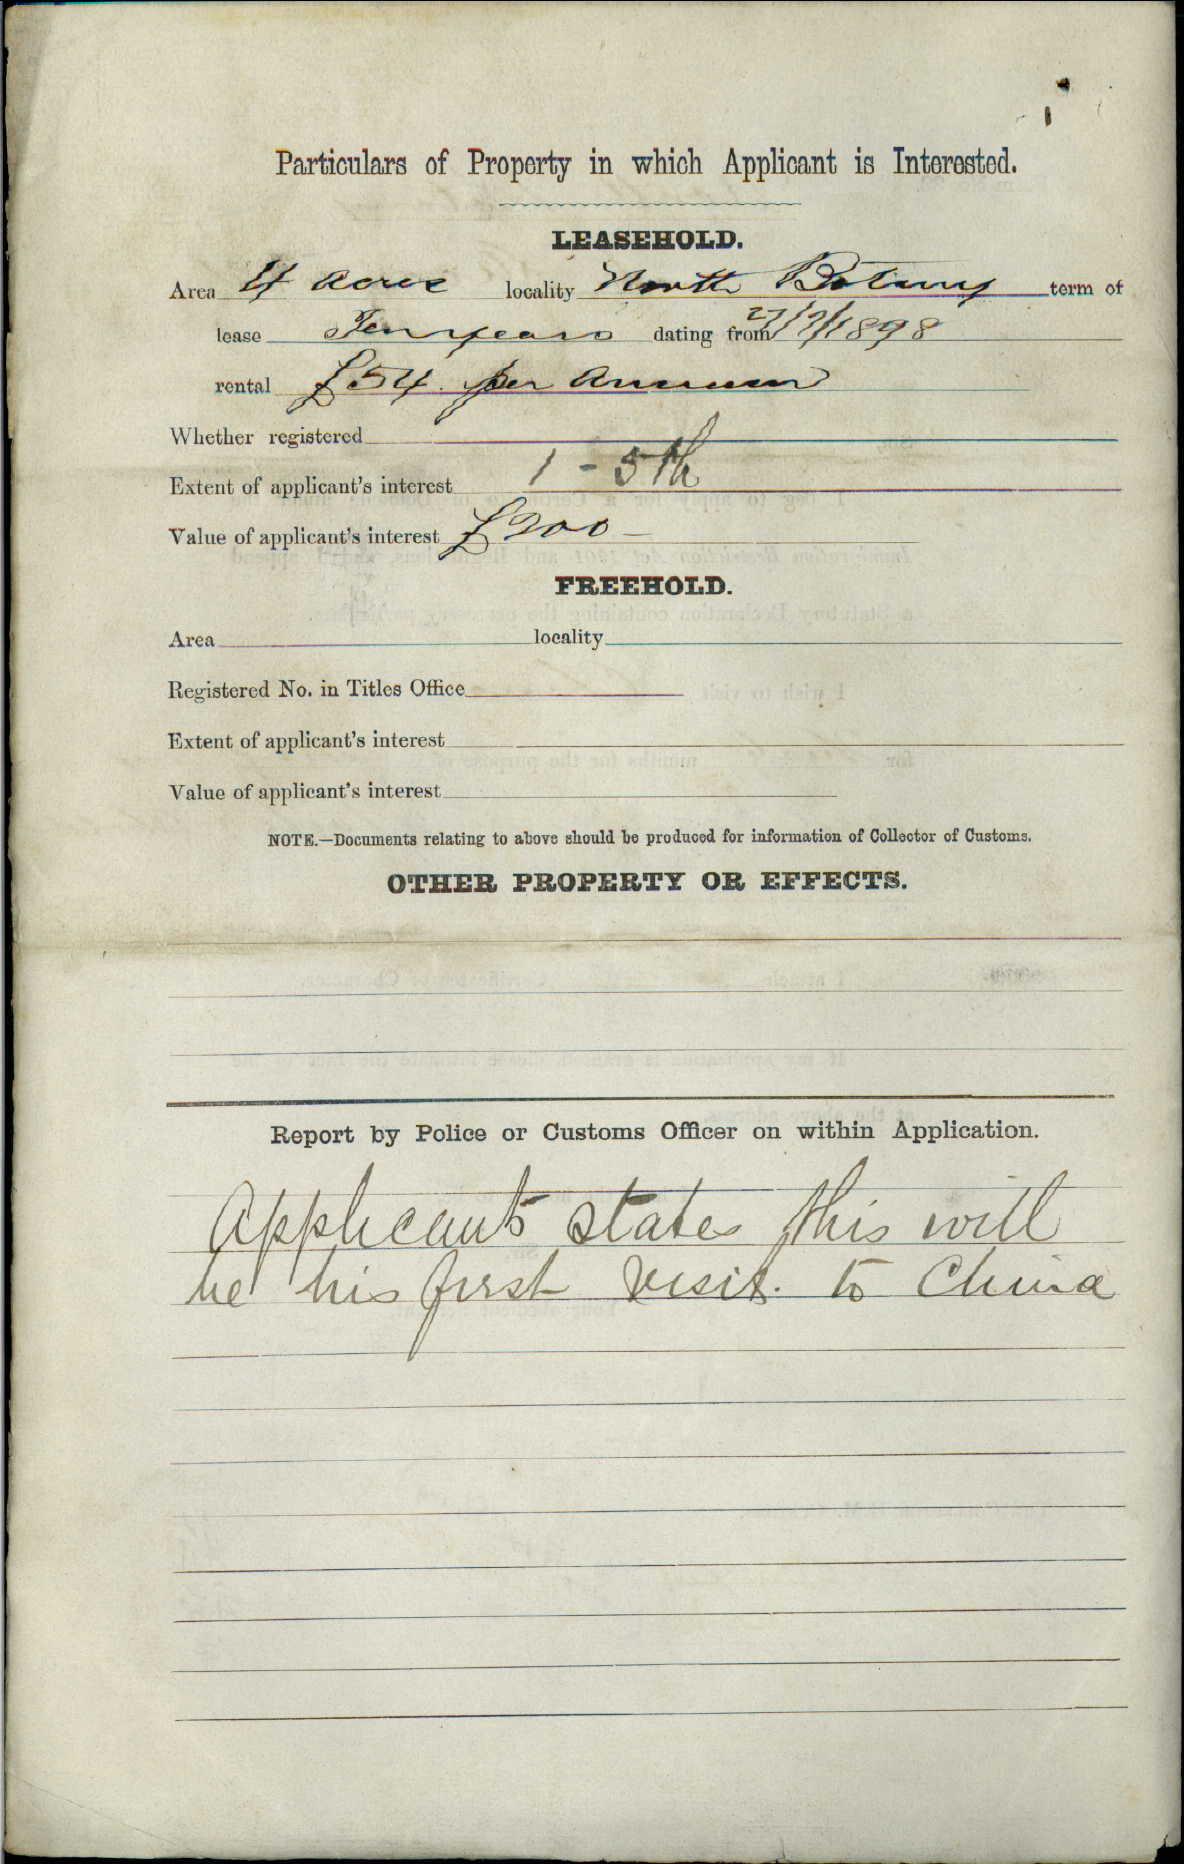 Particulars of Property in which Applicant is Interested.
LEASEHOLD.
Area 4 acres locality North Botany term of
lease Ten years dating from 27/7/1898
rental £54. per Annum
Whether registered
Extent of applicant's interest 1 - 5th
Value of applicant's interest £200 —
FREEHOLD.
Area locality
Registered No. in Titles Office
Extent of applicant's interest
Value of applicant's interest
NOTE.—Documents relating to above should be produced for information of Collector of Customs.
OTHER PROPERTY OR EFFECTS.
Report by Police or Customs Officer on within Application.
Applicant states this will
be his first visit. to China